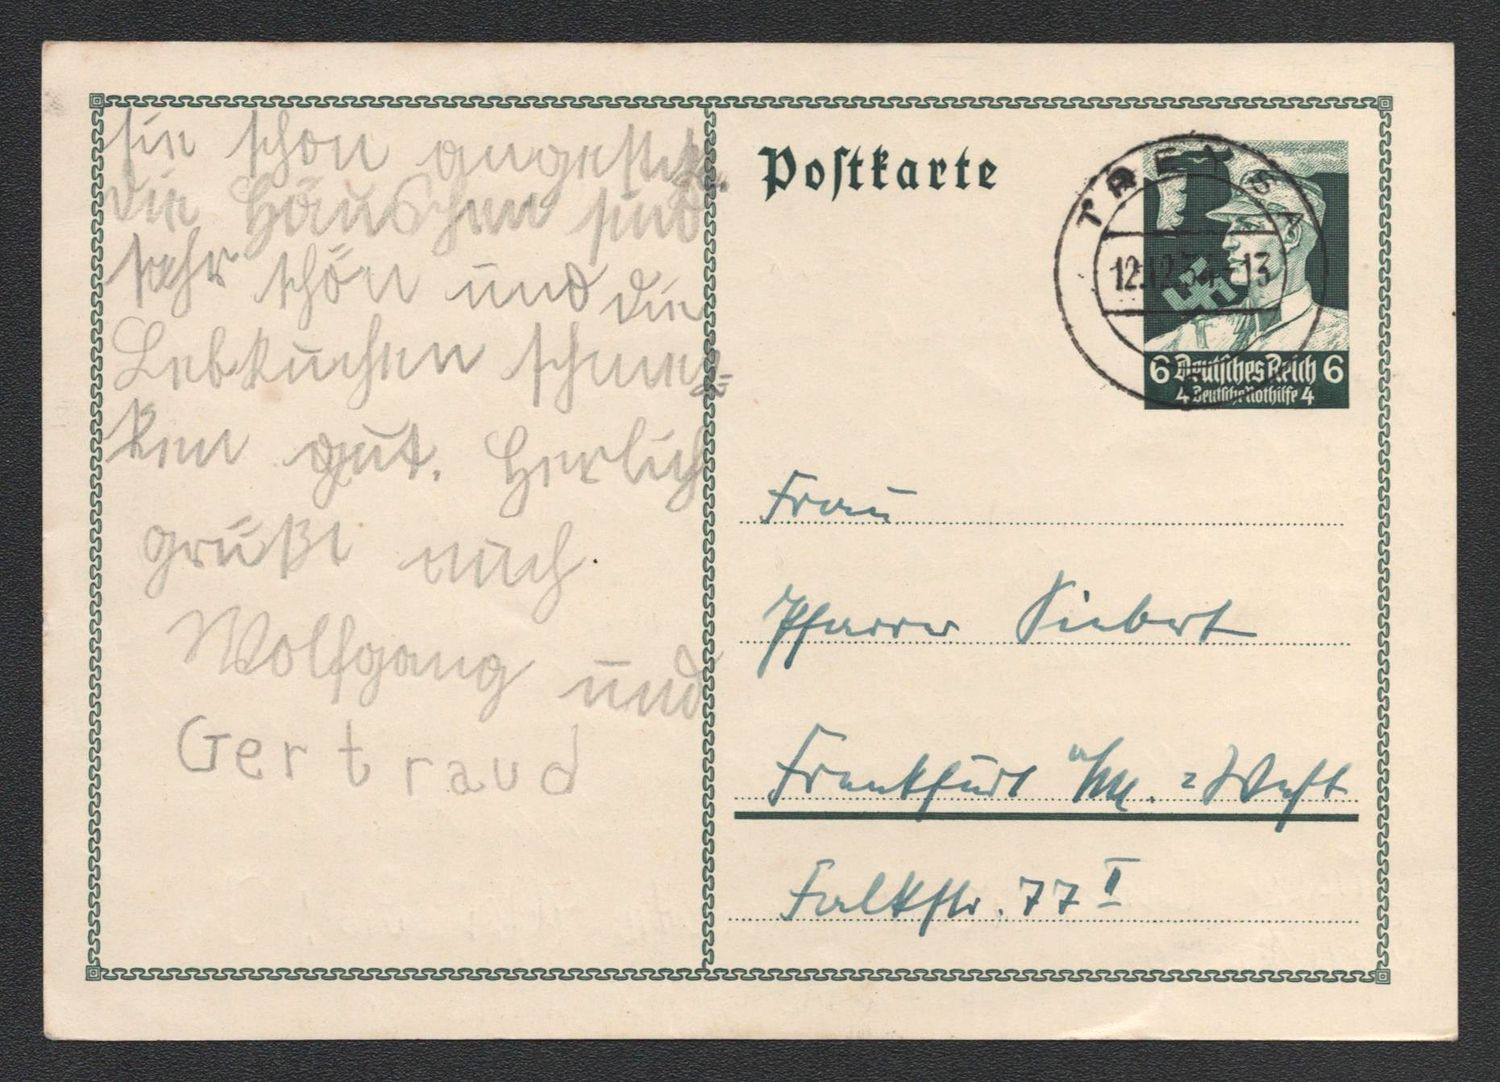 sie schon angesteckt.
die Häuschen sind
sehr schön und die
Lebkuchen schmek=
ken gut. Herlich
grüßt euch
Wolfgang und
Gertraud
Postkarte
TREYSA
12.12.34.-13
6 Deutsches Reich 6
4 Deutsche Nothilfe 4
Frau
Pfarrer Siebert
Frankfurt a/M.=West
Falkstr. 77 II